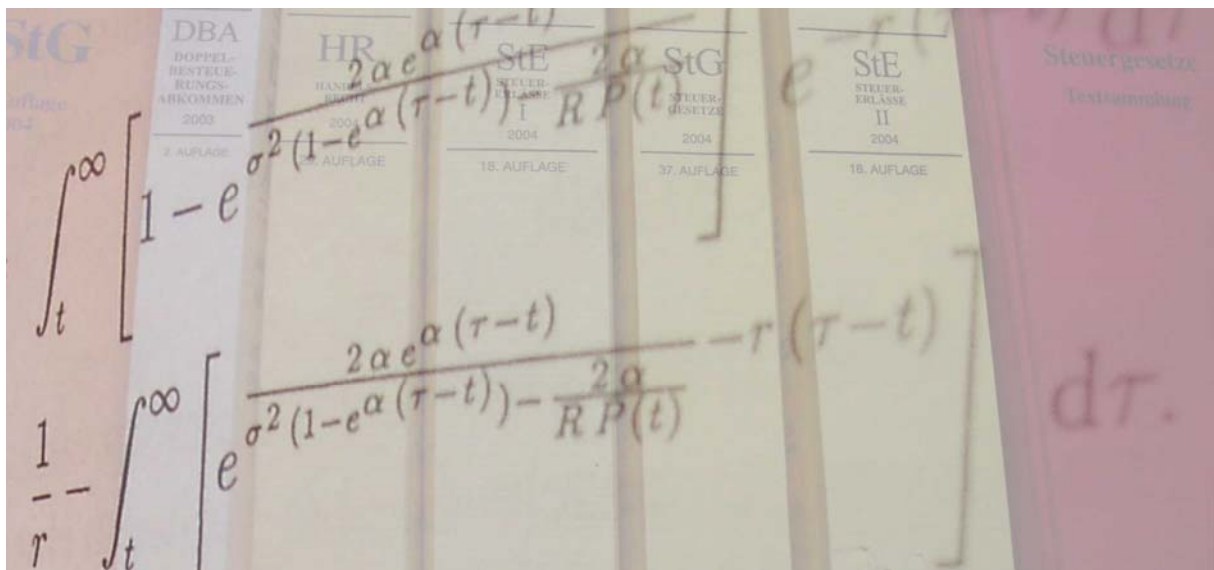 StG
DBA
DOPPEL-
BESTEUE-
RUNGS-
ABKOMMEN
2003
2. AUFLAGE
HR
2004
AUFLAGE
StE
STEUER-
ERLASSE
I
2004
18. AUFLAGE
StG
STEUER-
GESETZE
2004
37. AUFLAGE
StE
STEUER-
ERLASSE
II
2004
18. AUFLAGE
Steuergesetze
Textsammlung
∫_t^∞ [1 − e^{2 α e^{α (τ−t)} / (σ^2 (1−e^{α (τ−t)}) − 2 α / (R P(t))}] e^{−r (τ−t)} dτ
1/r − ∫_t^∞ [e^{2 α e^{α (τ−t)} / (σ^2 (1−e^{α (τ−t)}) − 2 α / (R P(t))) − r (τ−t)}] dτ.